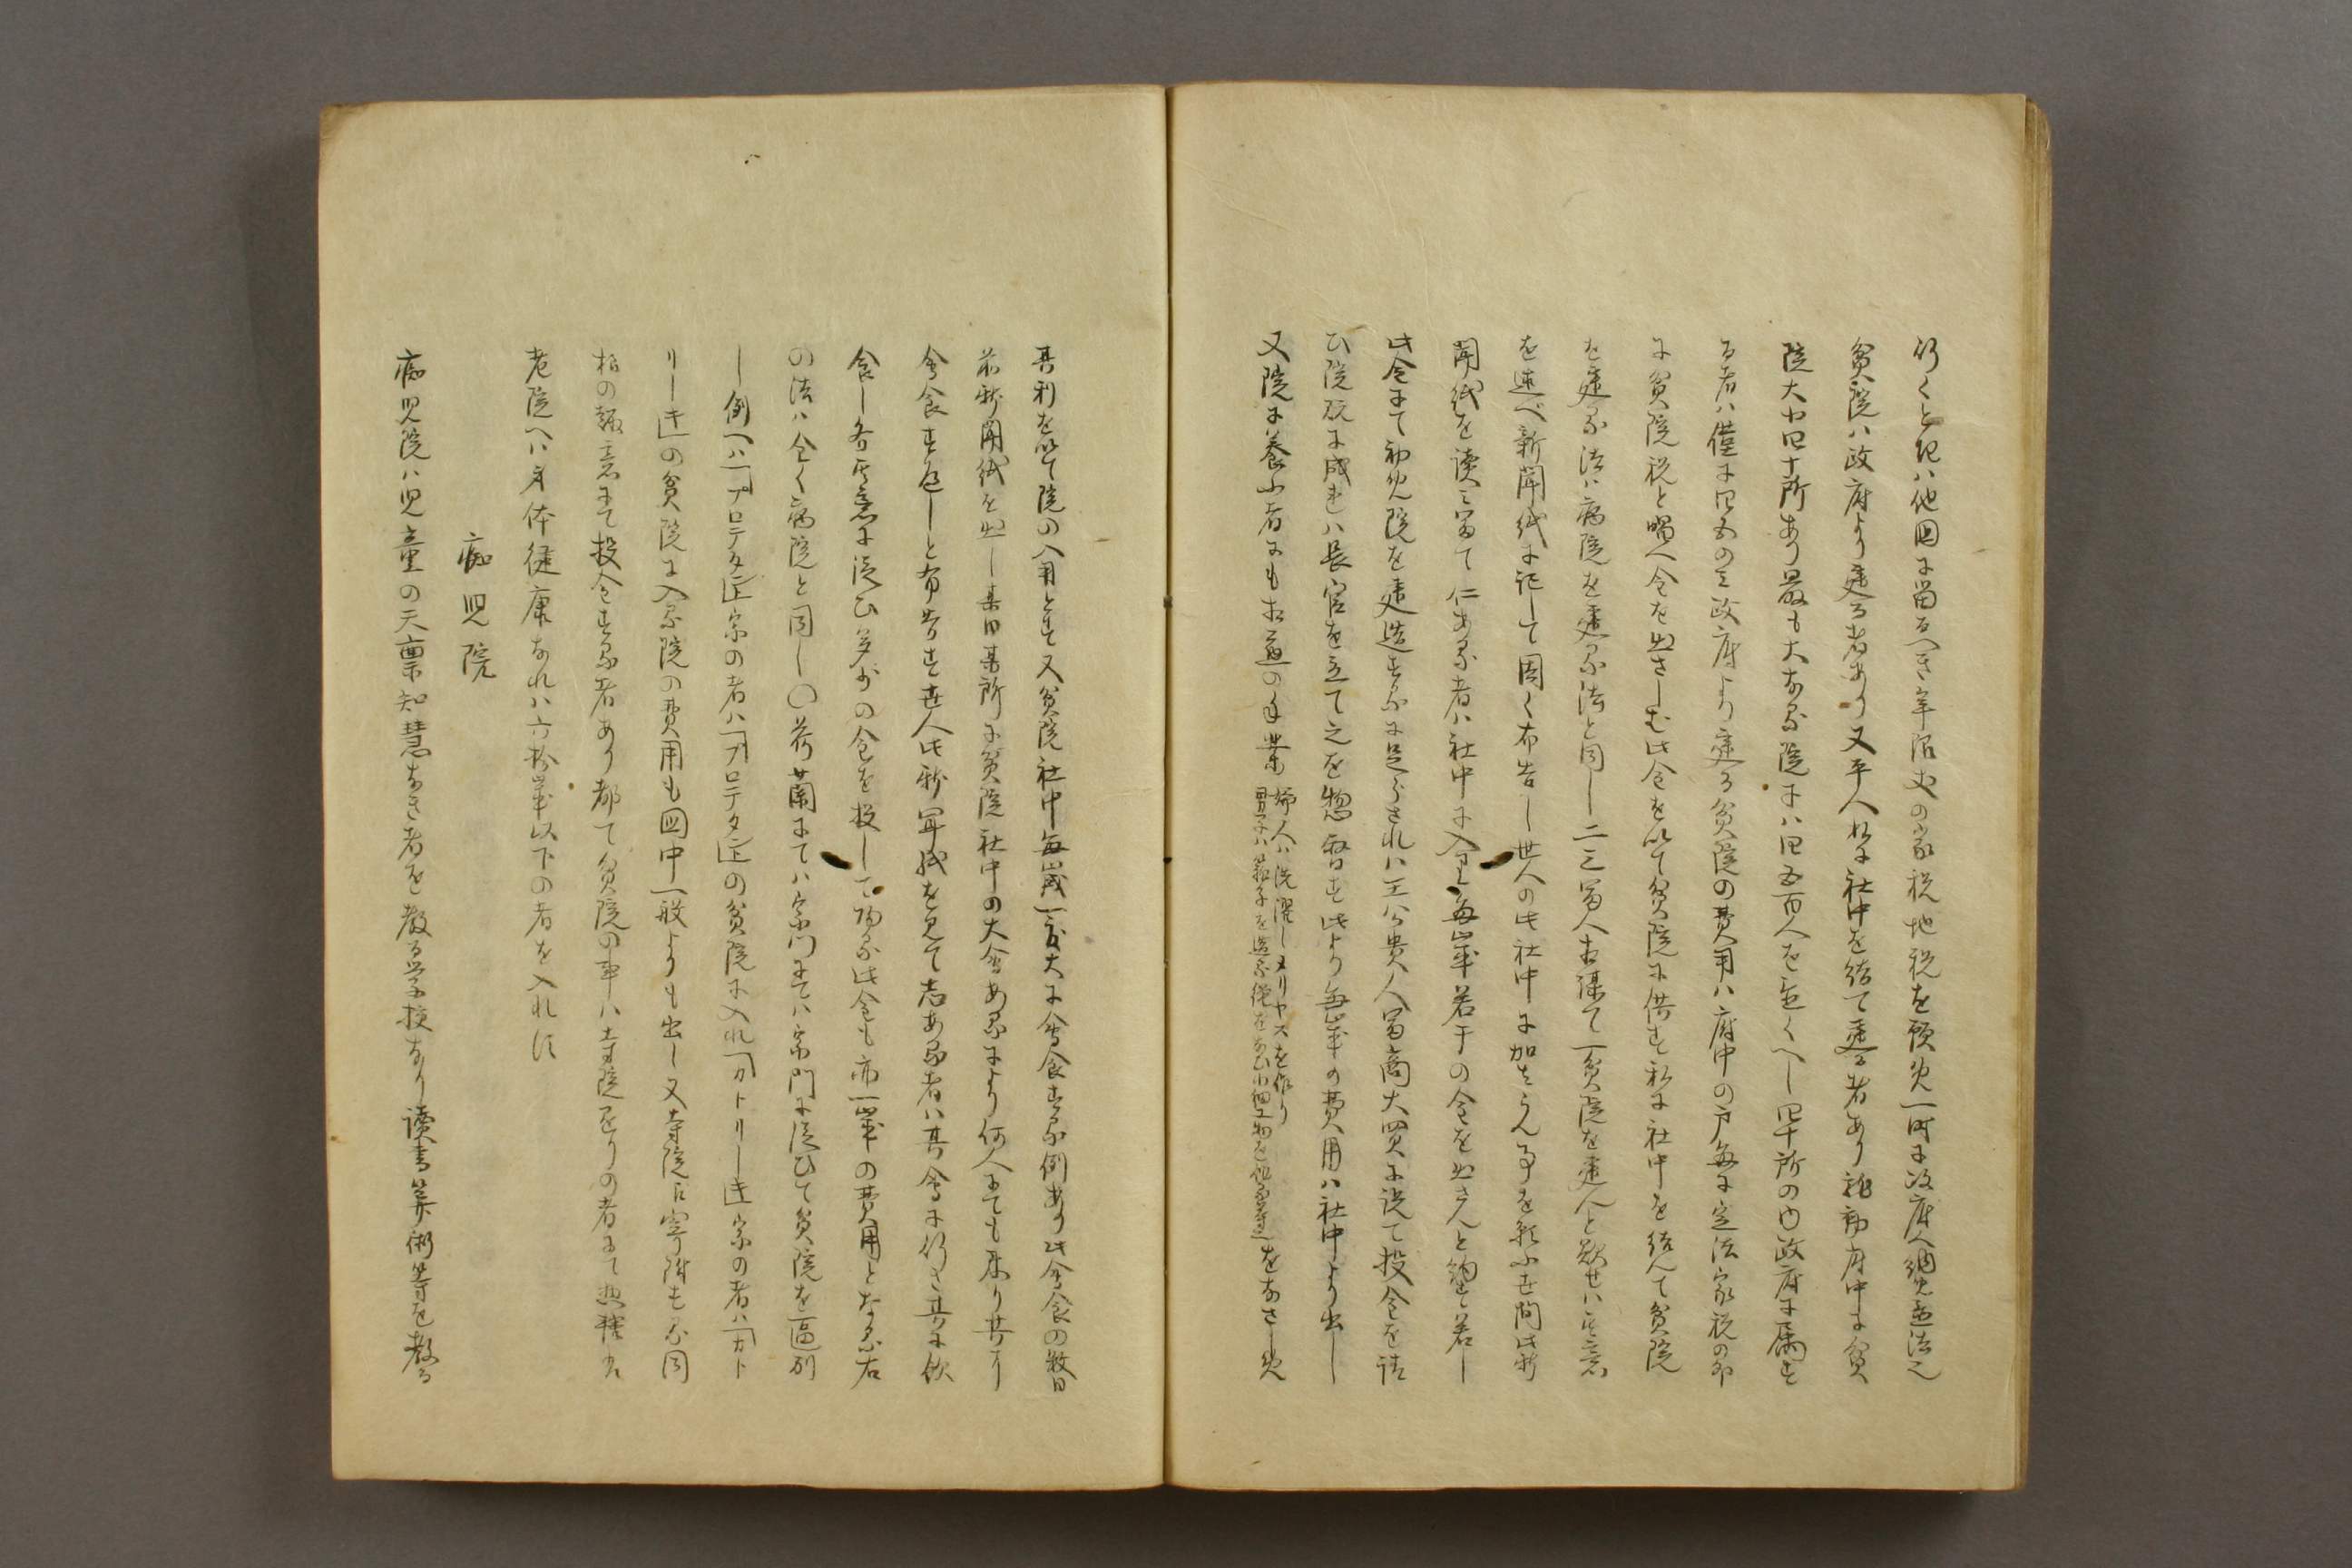 行くとき八他国に留るへき年限丈の家税地税を預め一时に政府へ納む
貧院ハ政府より建る者あり又平人私に社中を結て建る者あり龍動府中に貧
院大小四十所あり最も大なる院にハ四五百人を置くへし四十所の内政府に属す
る者ハ僅に四五のミ政府より建る貧院の費用ハ府中の戸毎に定法家税の外
に貧院税と唱へ金を出さしむ此金を以て貧院に供す私に社中を結んて貧院
を建る法ハ病院を建る法と同し二三富人相謀て一貧院を建んと欲せハ其意
を述べ新聞紙に記して国く布告し世人の此社中に加せん事を願ふ世間此新
聞紙を読ミ富て仁ある者ハ社中に入り毎年若干の金を出さんと約す若し
此金にて初め院を建造するに足らされハ王公貴人富商大買に説て投金を請
ひ院既に成れハ長官を立て之を惣督す此より毎年の費用ハ社中より出し
又院に養ふ者にも相応の手業
婦人ハ洗濯しメリヤスを作り
男子ハ菓子を造る縄をなひ小細工物を作る等
をなさしめ
其利を以て院の入用とす又貧院社中毎歳一度大に會食する例あり此會食の数日
前新聞紙を出し某日某所に貧院社中の大會あるにより何人にても来り共に
會食す返しと布告す世人此新聞紙を見て志ある者ハ其會に行き共に飲
食し各其意に従ひ多少の金を投して帰る此金も亦一年の費用となる右
の法ハ全く病院と同し〇荷蘭にてハ宗門にてハ宗門に従ひて貧院を區別
し例へハ「プロテタ」宗の者ハ「プロテタ」の貧院に入れ「カトリーキ」宗の者ハ「カト
リーキ」の貧院に入る院の費用も国中一般よりも出し又寺院に寄附する同
派の趣意にて投金する者あり都て貧院の事ハ寺院の者にて
老院へハ身体健康なれハ六拾年以下の者を入れす
痴児院
痴児院ハ児童の天禀知慧なき者を教る学校なり讀書算術等を教る